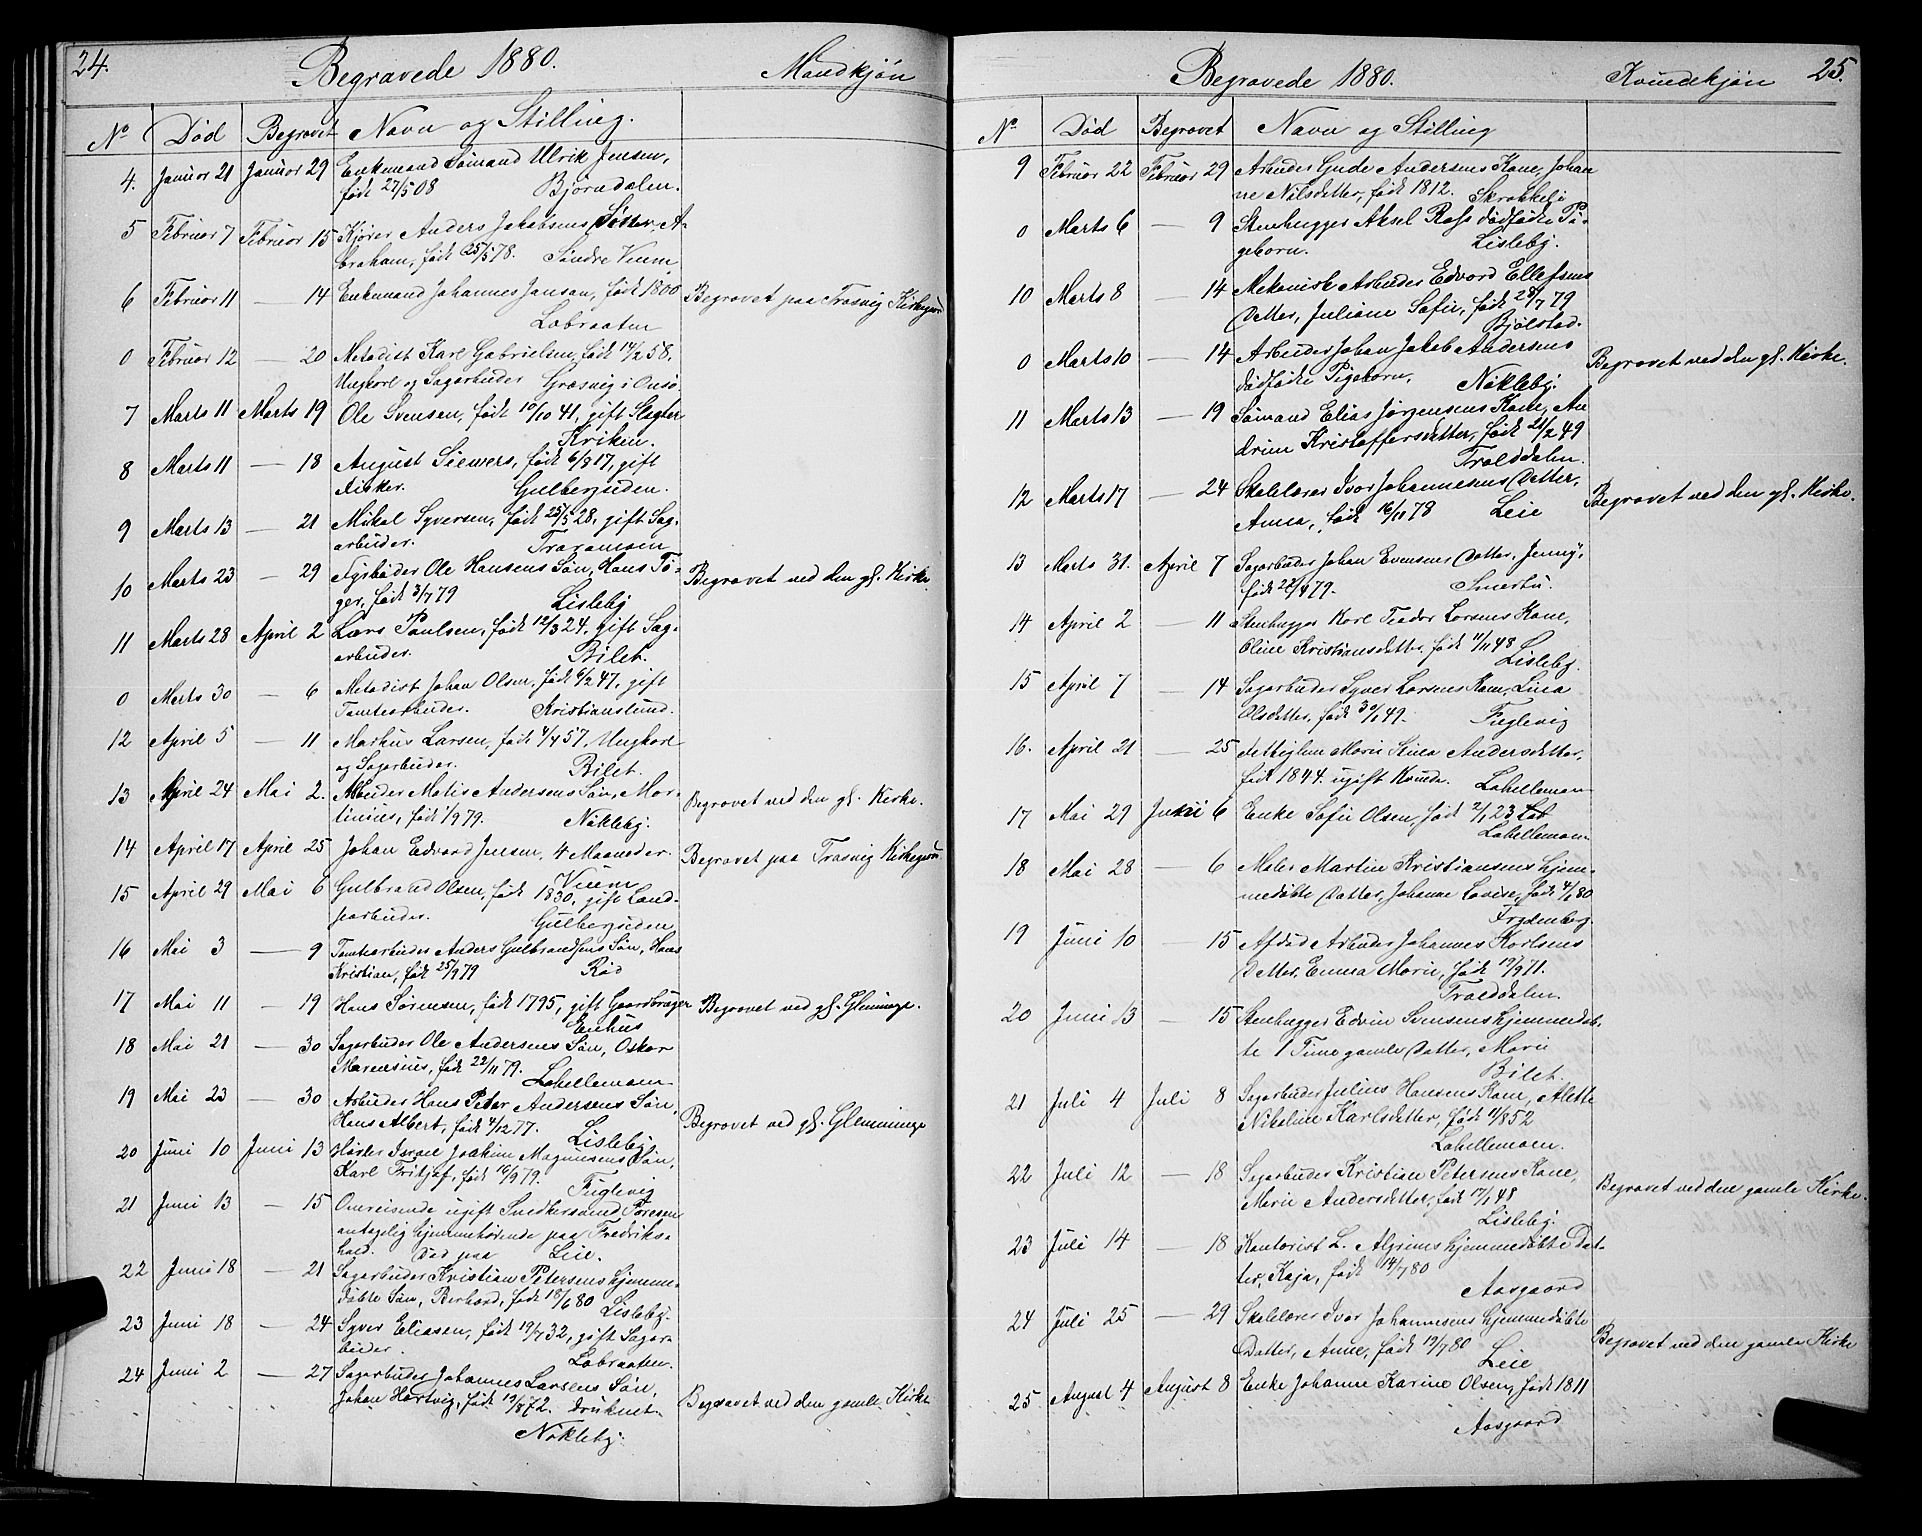 24.
Begravede 1880. Mandkjön
No Död Begravet Navn og Stilling.
4. Januar 21 Januar 29 Enkemand Sömand Ulrik Jensen,
födt 27/5 08 Bjørndalen.
5 Februar 7 Februar 15 Kjörer Anders Jakobsens Sötter, A-
braham, födt 25/5 78. Söndre Vium
6 Februar 11 — 14 Enkemand Johannes Jansan, födt 1800 Begravet paa Trosvig Kirkegaard
Labraaten
0 Februar 12 — 20 Metodist Karl Gabrielsen, födt 14/2 58,
Ungkarl og Sagarbuder Græsvig i Onsö
7 Marts 11 Marts 19 Ole Svensen, födt 10/10 41, gift Slagter
Kriken.
8 Marts 11 — 18 August Siewers, födt 6/8 17, gift
Fisker. Gulbergsiden.
9 Marts 13 — 21 Mikal Syversen, födt 25/5 28, gift Sag-
arbuder. Traramsen
10 Marts 23 — 29 Fyrböder Ole Hansens Sön, Hans Tö-
ger, födt 3/7 79 Lisleby Begravet ved den gl. Kirke.
11 Marts 28 April 2 Lars Paulsen, födt 12/3 24, gift Sag-
arbuder. Bilet.
0 Marts 30 — 6 Metodist Johan Olsen, födt 6/2 47, gift
Tomtearbuder. Kristianslund.
12 April 5 — 11 Markus Larsen, födt 4/4 57, Ungkarl
og Sagarbuder. Bilet.
13 April 24 Mai 2. Arbuder Matis Andersens Sön, Mar-
tinius, födt 1/9 79. Nökleby. Begravet ved den gl. Kirke.
14 April 17 April 25 Johan Edvard Jensen, 4 Maaneder. Begravet paa Trosvig Kirkegaard
Vium
15 April 29 Mai 6 Gulbrand Olsen, födt 1830, gift Land-
arbuder. Gulbergsiden
16 Mai 3 — 9 Tomtearbuder Anders Gulbrandsens Sön, Hans
Kristian, födt 25/9 79 Röd
17 Mai 11 — 19 Hans Sörensen, födt 1795, gift Gaardbruger Begravet ved gl. Glemminge.
Enhus
18 Mai 21 — 30 Sagarbuder Ole Andersens Sön, Oskar
Marensius, födt 22/11 79. Lahellemoen
19 Mai 23 — 30 Arbuder Hans Peter Andersens Sön,
Hans Albert, födt 4/12 77. Lisleby Begravet ved gl. Glemminge
20 Juni 10 Juni 13 Israel Joakim Magnusens Sön,
Karl Fritjof, födt 16/9 79. Fuglevig
21 Juni 13 — 15 Omreisende ugift Snedkersvend Poresen
antagelig hjemmehörende paa Fredriks-
hald. Död paa Leie.
22 Juni 18 — 21 Sagarbuder Kristian Petersens hjemme-
döbte Sön, Berhard, födt 18/6 80 Lisleby.
23 Juni 18 — 24 Syver Eliasen, födt 19/7 32, gift Sagar-
buder. Labraaten.
24 Juni 2 — 27 Sagarbuder Johannes Larsens Sön,
Johan Hartvig, födt 19/8 72. druknet. Begravet ved den gamle Kirke
Nökleby.
Begravede 1880. Kvindekjön 25.
No Död Begravet Navn og Stilling
9 Februar 22 Februar 29 Arbuder Gude Andersens Kone, Johan
ne Nilsdatter, födt 1812. Skrakkeli
0 Marts 6 — 9 Stenhugger Aksel Rafs dödfödte Pi-
geborn. Lisleby.
10 Marts 8 — 14 Mekanisk Arbuder Edvard Ellefsens
Datter, Juliane Sofie, födt 28/7 79
Bjölstad.
0 Marts 10 — 14 Arbuder Johan Jakob Andersens
dödfödte Pigeborn. Nökleby. Begravet ved den gl. Kirke.
11 Marts 13 — 19 Sömand Elias Jörgensens Kone, An
drine Kristoffersdatter, födt 21/2 49
Trolddalen.
12 Marts 17 — 24 Skolelærer Ivar Johannesens Datter,
Anna, födt 16/11 78 Leie Begravet ved den gl. Kirke.
13 Marts 31. April 7 Sagarbuder Johan Evensens Datter, Jenny,
födt 22/4 79. Smertu.
14 April 2 — 11 Stenhugger Karl Teodor Larsens Kone,
Oline Kristiansdatter, födt 11/11 48
Lisleby.
15 April 7 — 14 Sagarbuder Syver Larsens Kone, Lina
Olsdatter, födt 30/1 49. Fuglevig
16. April 21 — 25 Fattiglem Marie Stina Andersdatter,
födt 1844. ugift Kvinde. Lahellemoen
17 Mai 29 Juni 6 Enke Sofie Olsen, födt 2/1 23 Lab
Lahellemoen
18 Mai 28 — 6 Maler Martin Kristiansens hjem-
medöbte Datter, Johanne Lovise, födt 4/1 80
Frydenberg.
19 Juni 10 — 15 Afdöd Arbuder Johannes Karlsens
Datter, Emma Marie, födt 19/9 71.
Trolddalen.
20 Juni 13 — 15 Stenhugger Edvin Svensens hjemmedöb-
te 1 Time gamle Datter, Marie
Bilet.
21 Juli 4 Juli 8 Sagarbuder Julius Hansens Kone, Alette
Nikoline Karlsdatter, födt 11/8 52
Lahellemoen.
22 Juli 12 — 18 Sagarbuder Kristian Petersens Kone,
Marie Andersdatter, födt 17/1 48 Begravet ved den gamle Kirke.
Lisleby.
23 Juli 14 — 18 Kontorist L. Algrims hjemmedöbte Dat-
ter, Kaja, födt 14/7 80
Aasgaard
24 Juli 25 — 29 Skolelærer Ivar Johannesens hjemmedöbte
Datter, Anne, födt 19/7 80 Leie Begravet ved den gamle Kirke
25. August 4 August 8 Enke Johanne Karine Olsen, födt 1811
Aasgaard